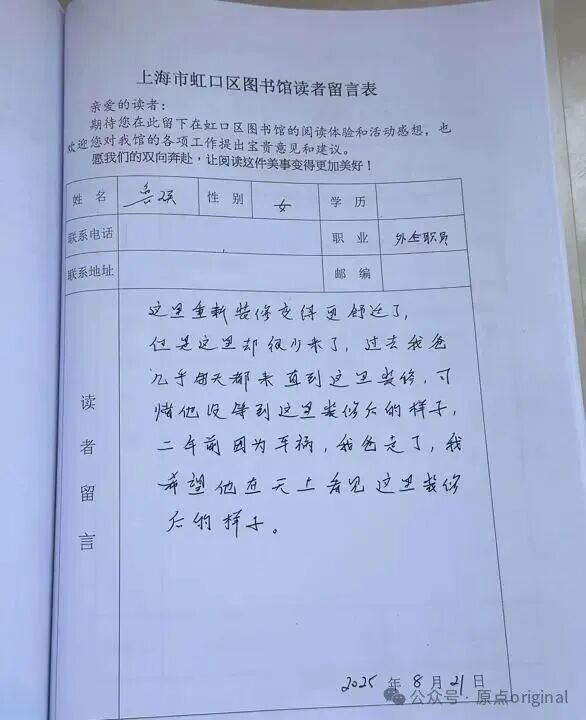 上海市虹口区图书馆读者留言表
亲爱的读者：
期待您在此留下在虹口区图书馆的阅读体验和活动感想，也
欢迎您对我馆的各项工作提出宝贵意见和建议。
愿我们的双向奔赴，让阅读这件美事变得更加美好！
姓 名 性 别 女 学 历
联系电话 职 业 外企职员
联系地址 邮 编
读者留言
这里重新装修变得更舒适了，
但是这里却很少来了，过去我爸
几乎每天都来直到这里装修，可
惜他没等到这里装修后的样子，
二年前因为车祸，我爸走了，我
希望他在天上看见这里装修
后的样子。
2025 年 8 月 21 日
公众号 · 原点original